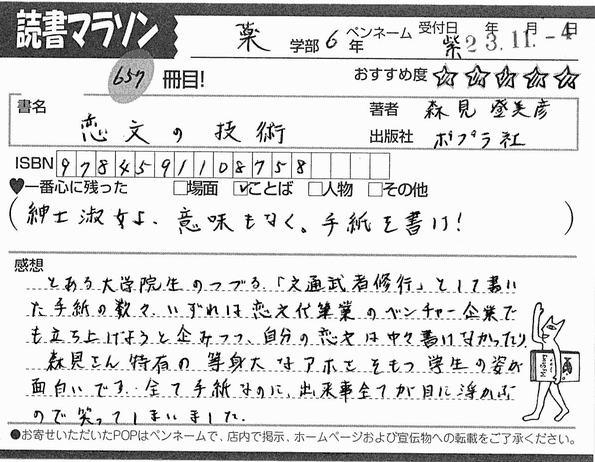 読書マラソン
薬 学部 6年 ペンネーム 紫 受付日 年 月 日
23.11.-4
657 冊目!
おすすめ度 ☆☆☆☆☆
書名 恋文の技術
著者 森見登美彦
出版社 ポプラ社
ISBN 9784591108758
♥一番心に残った □場面 ☑ことば □人物 □その他
(紳士淑女よ、意味もなく。手紙を書け!)
感想
とある大学院生のつづる「文通武者修行」として書い
た手紙の数々。いずれは恋文代筆業のベンチャー企業で
も立ち上げようと企みつつ、自分の恋文は中々書けなかったり
森見さん特有の等身大なアホさをもつ学生の姿が
面白いです。全て手紙なのに、出来事全てが目に浮かぶ
ので笑ってしまいました。
●お寄せいただいたPOPはペンネームで、店内で掲示、ホームページおよび宣伝物への転載をご了承ください。